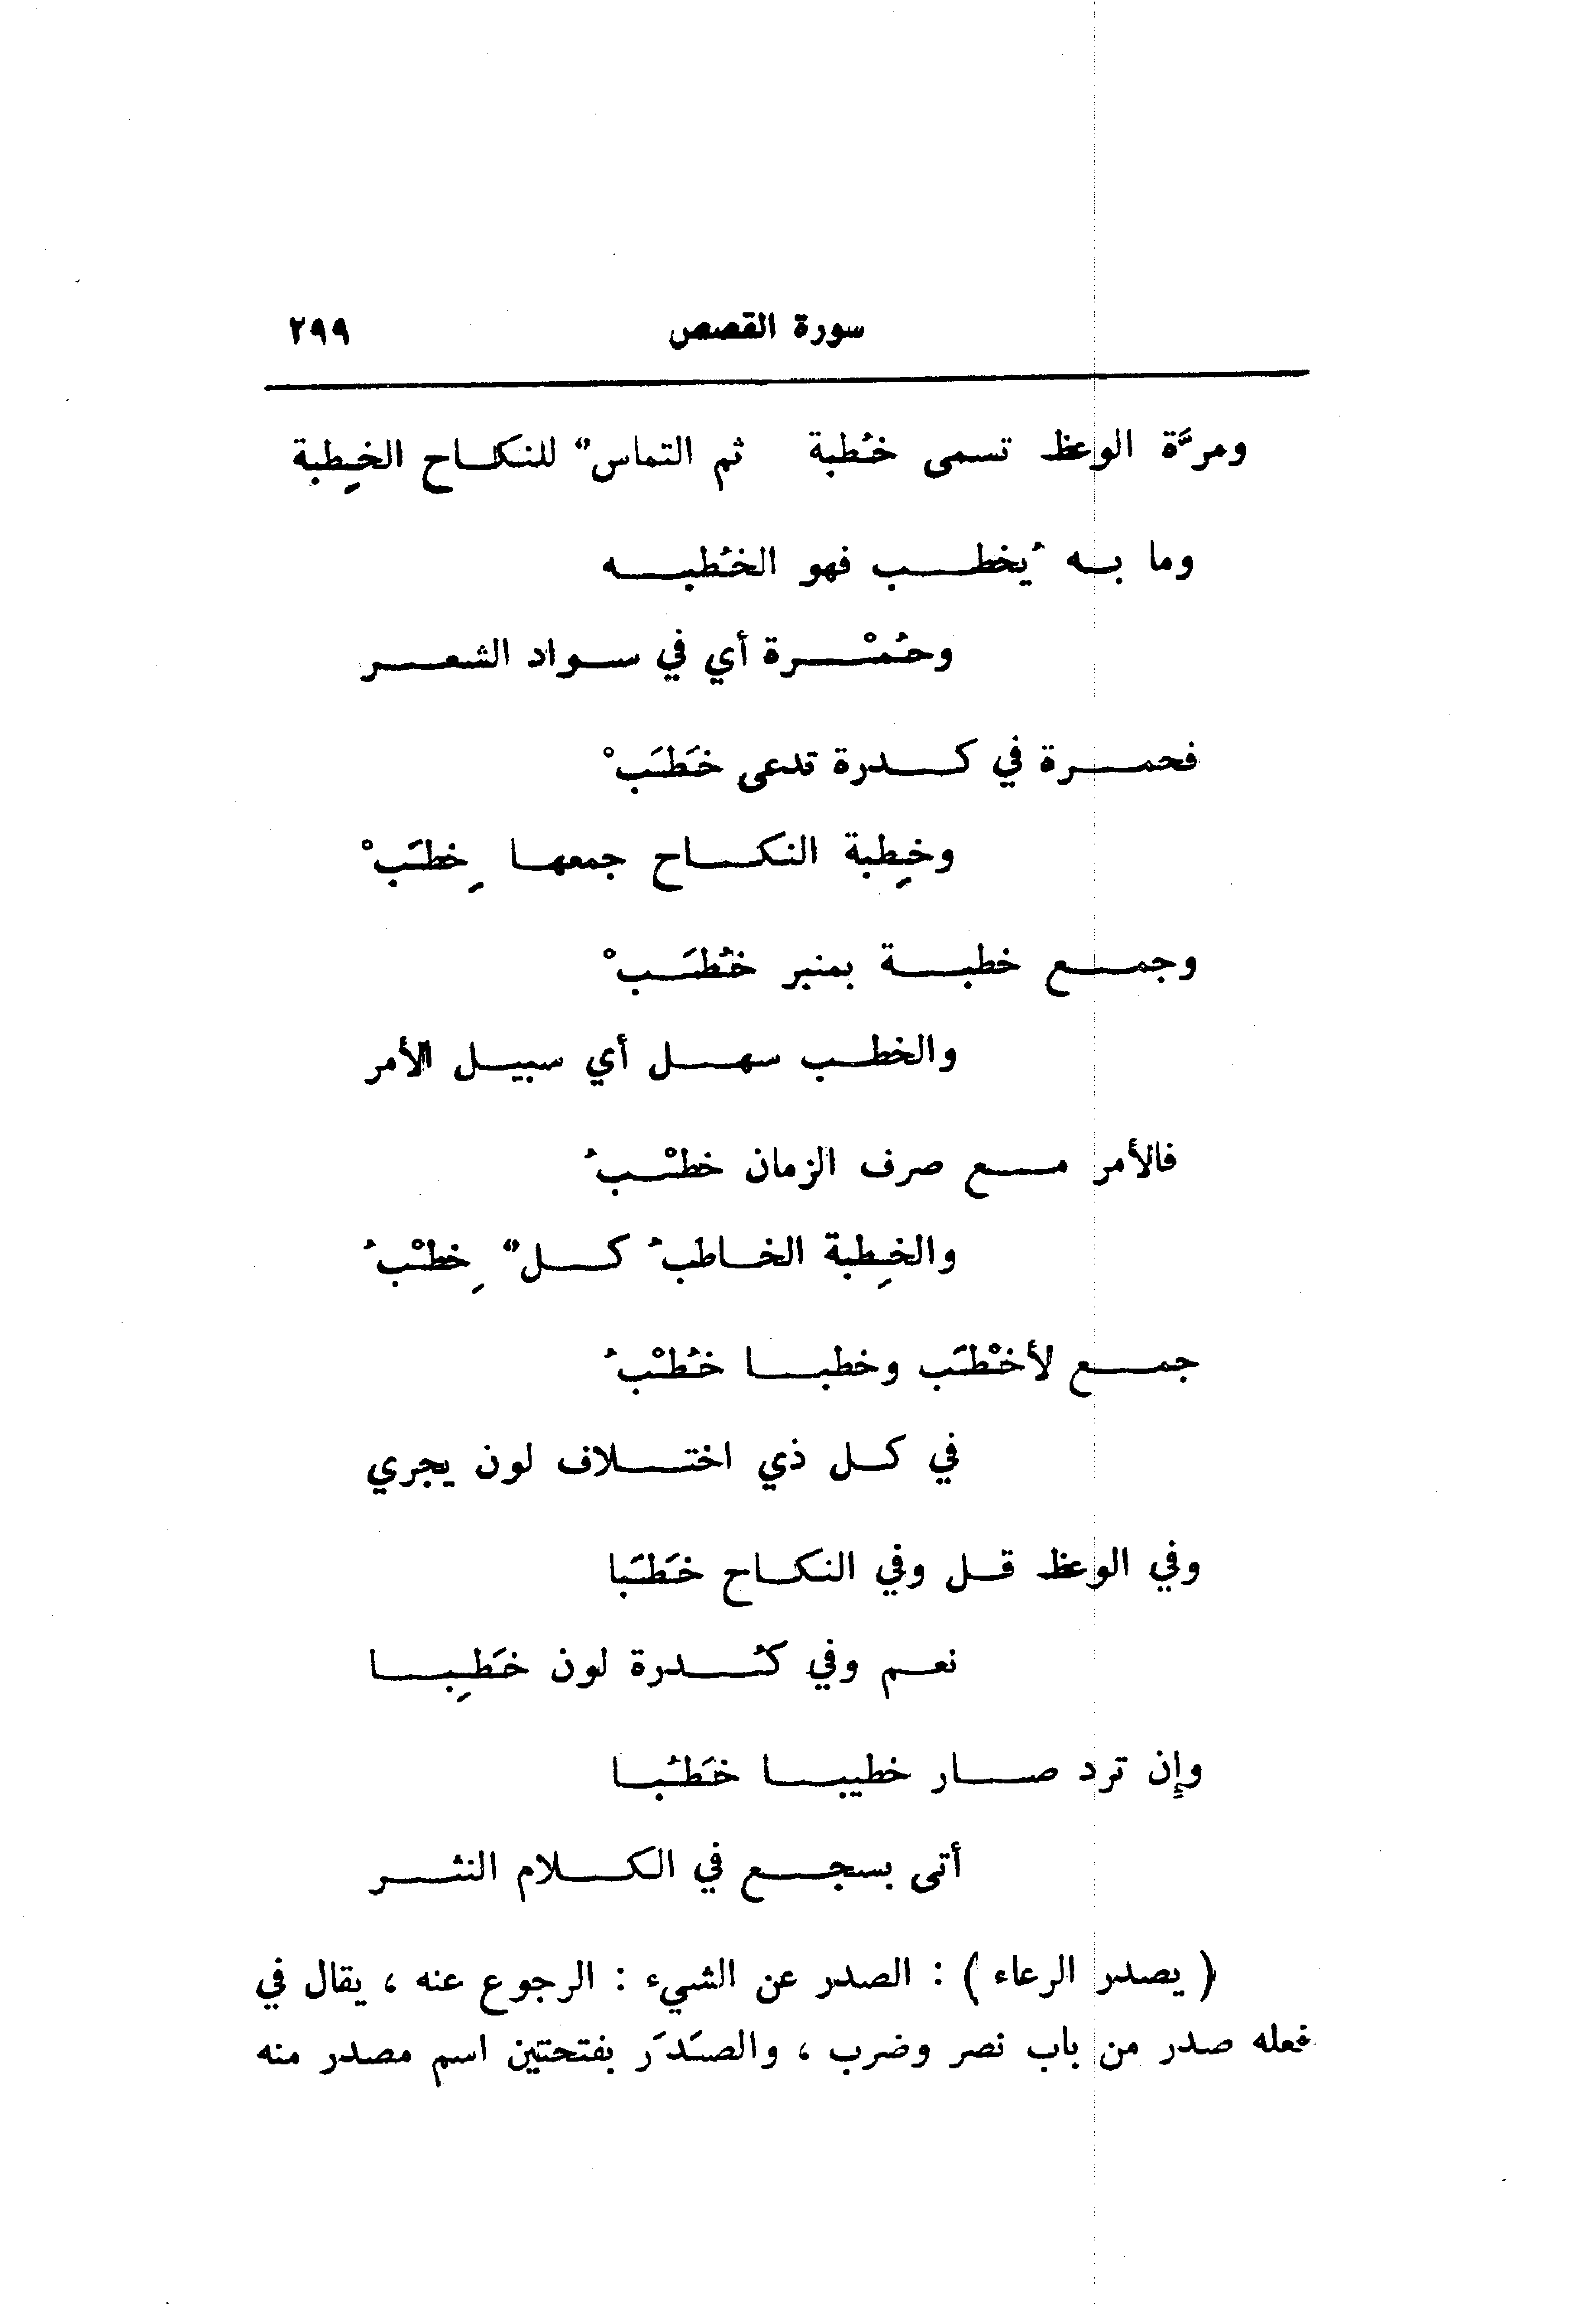 سورة القصص ٢٩٩
ومرَّة الوعظ تسمى خُطبة ثم التماسٌ للنكاح الخِطبة
وما به يُخطب فهو الخُطبه
وحُمْرة أي في سواد الشعر
فحمرة في كدرة تدعى خَطَبْ
وخِطبة النكاح جمعها خِطَبْ
وجمع خطبة بمنبر خُطَبْ
والخطب سهل أي سبيل الأمر
فالأمر مع صرف الزمان خطْبُ
والخِطبة الخاطبُ كلٌ خِطْبُ
جمع لأخْطَب وخطبا خُطْبُ
في كل ذي اختلاف لون يجري
وفي الوعظ قل وفي النكاح خَطَبا
نعم وفي كُدرة لون خَطِبا
وإن ترد صار خطيبا خَطُبا
أتى بسجع في الكلام النثر
( يصدر الرعاء ) : الصدر عن الشيء : الرجوع عنه ، يقال في
فعله صدر من باب نصر وضرب ، والصَدَر بفتحتين اسم مصدر منه